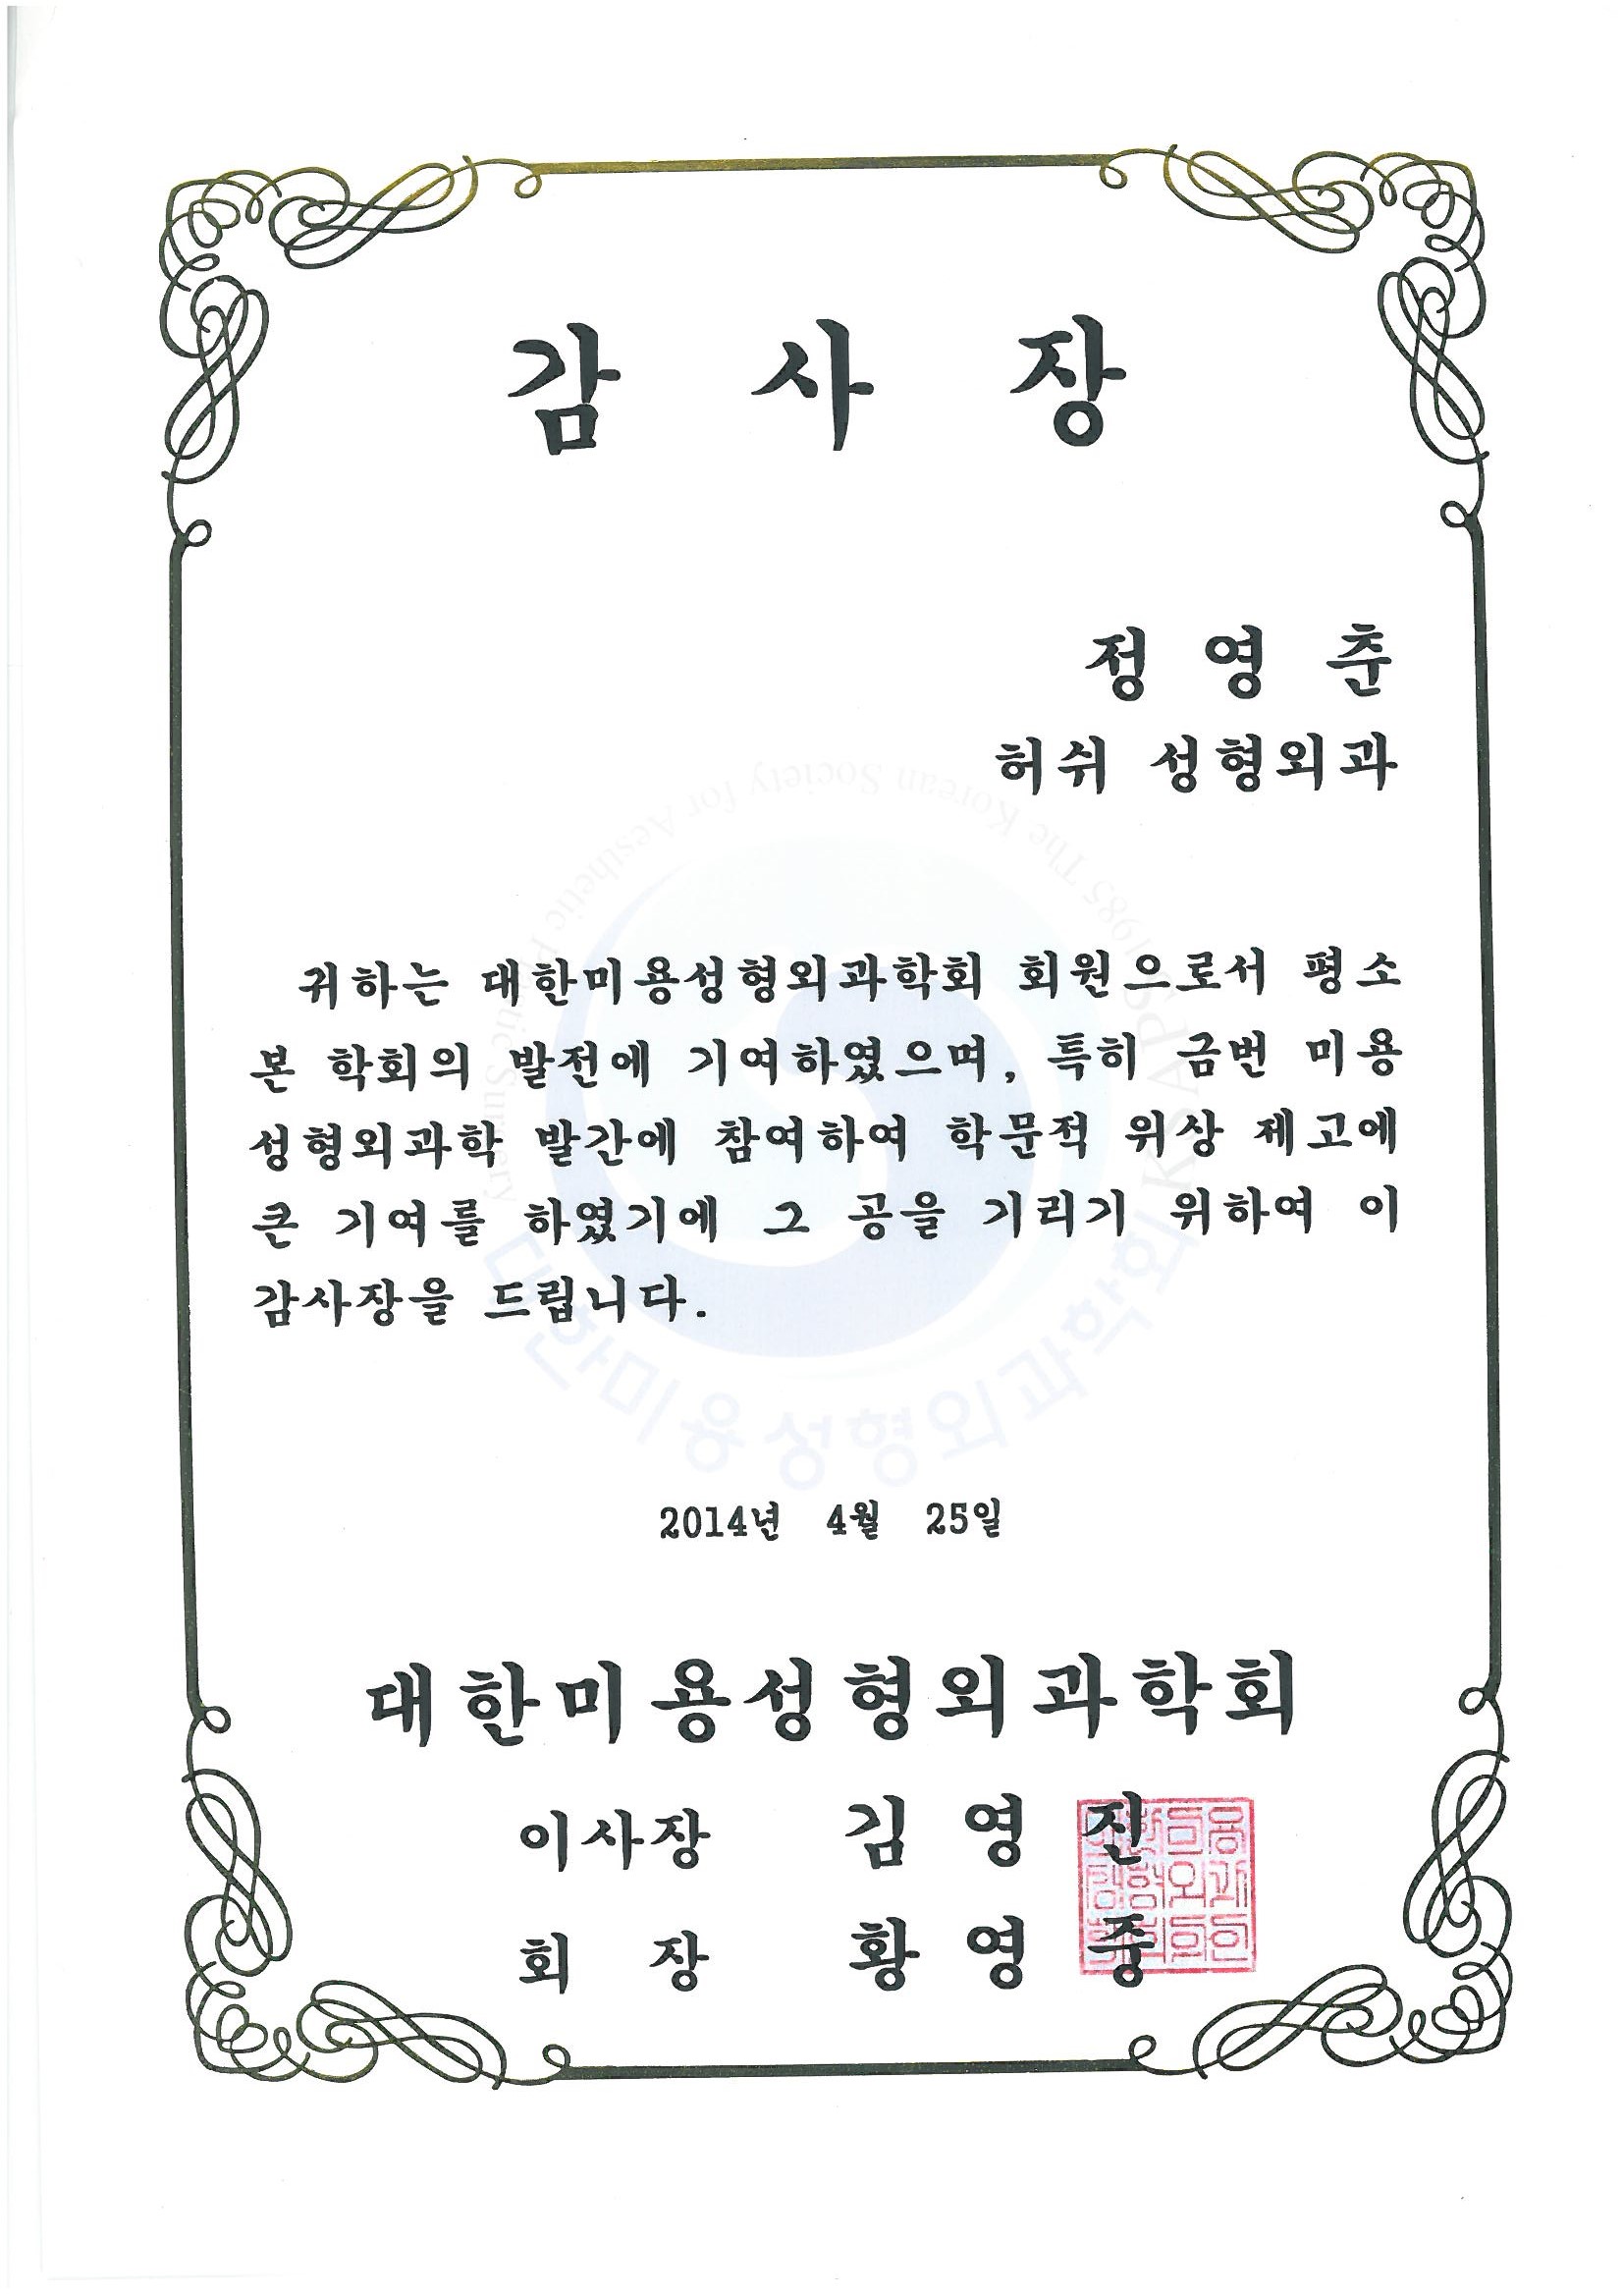 감 사 장
정 영 춘
허쉬 성형외과
귀하는 대한미용성형외과학회 회원으로서 평소
본 학회의 발전에 기여하였으며, 특히 금번 미용
성형외과학 발간에 참여하여 학문적 위상 제고에
큰 기여를 하였기에 그 공을 기리기 위하여 이
감사장을 드립니다.
2014년 4월 25일
대한미용성형외과학회
이사장 김 영 진
회 장 황 영 중
KSAPS 1985 The Korean Society for Aesthetic Plastic Surgery
대한미용성형외과학회